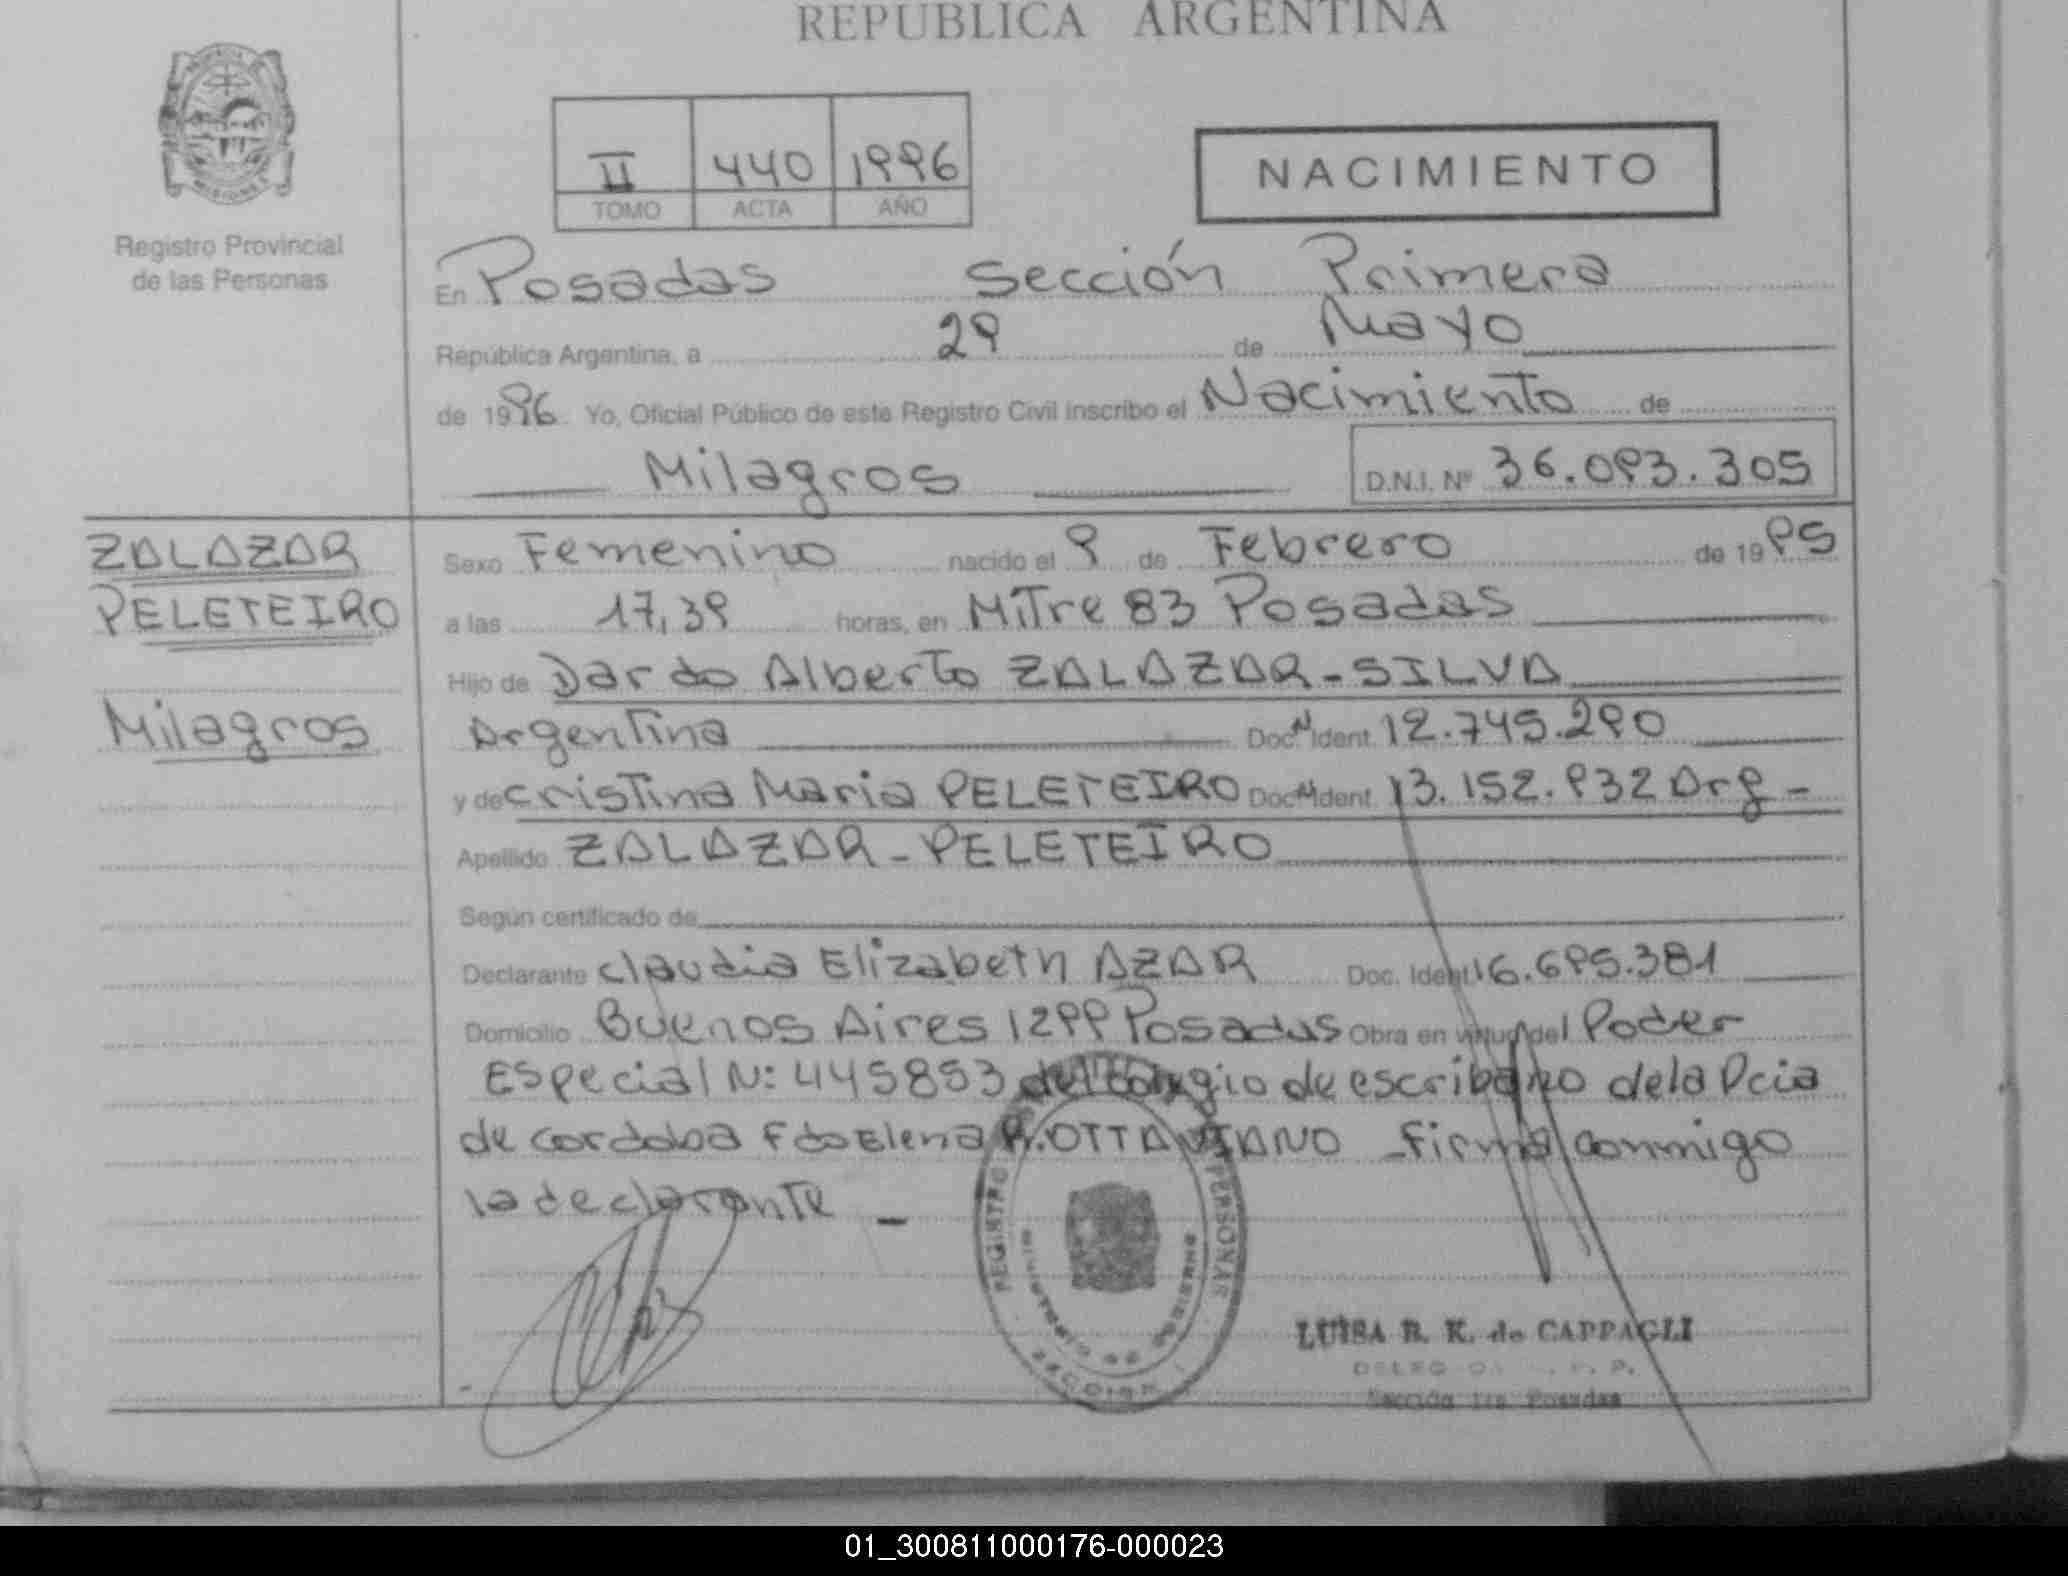 REPUBLICA ARGENTINA
II 440 1996
TOMO ACTA AÑO
NACIMIENTO
Registro Provincial
de las Personas
En Posadas Sección Primera
República Argentina, a 29 de Mayo
de 1996 Yo, Oficial Público de este Registro Civil inscribo el Nacimiento de
Milagros
D.N.I. Nº 36.093.305
ZALAZAR
PELETEIRO
Milagros
Sexo Femenino nacido el 9 de Febrero de 1995
a las 17,39 horas, en Mitre 83 Posadas
Hijo de Dardo Alberto ZALAZAR-SILVA
Argentina Doc. N Ident. 12.745.290
y de Cristina Maria PELETEIRO Doc. N Ident. 13.152.932 Arg -
Apellido ZALAZAR-PELETEIRO
Según certificado de
Declarante Claudia Elizabeth AZAR Doc. Ident. 16.695.381
Domicilio Buenos Aires 1299 Posadas Obra en virtud del Poder
Especial N: 445853 del Colegio de escribano de la Pcia
de Cordoba Fdo Elena R. OTTAVIANO - Firma conmigo
la declarante -
REGISTRO PERSONAS
LUISA B. K. de CAPPAGLI
Sección 1ra Posadas
01_300811000176-000023